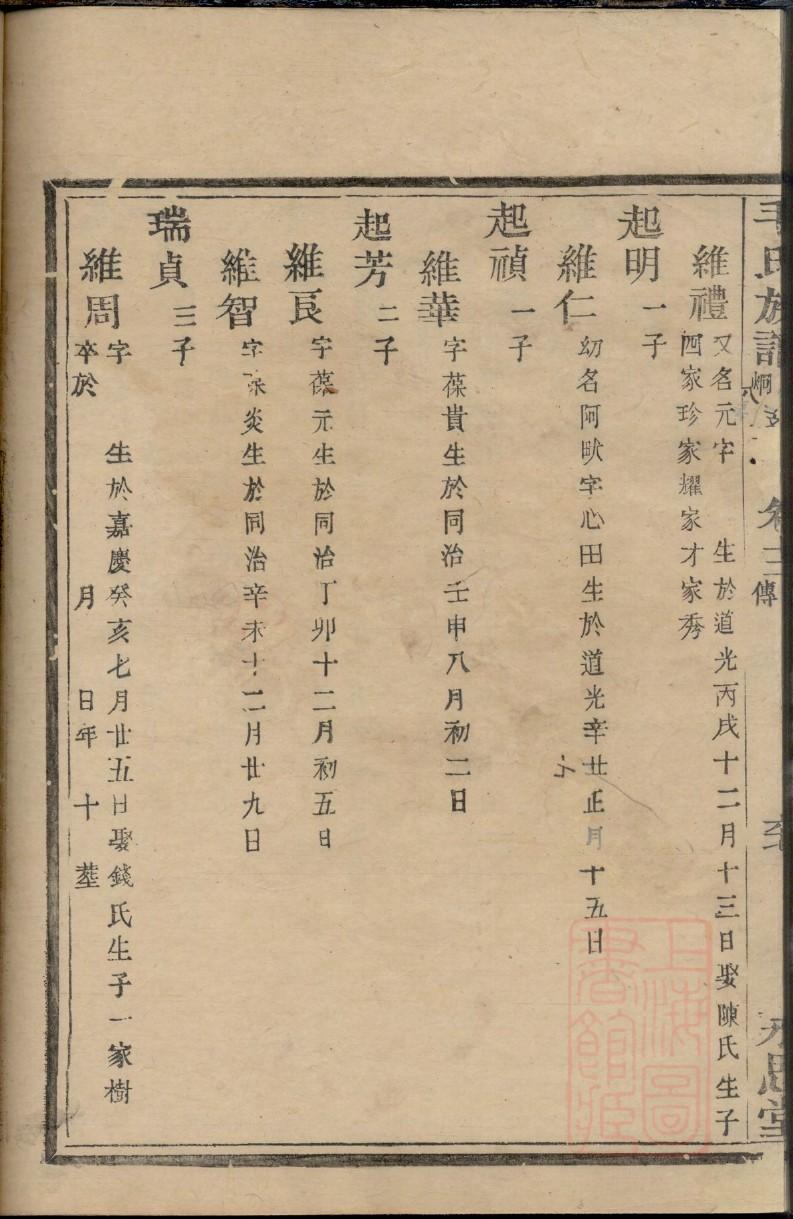 毛氏族譜 卷三傳 永思堂
維禮 又名元字 生於道光丙戌十二月十三日娶陳氏生子
四家珍家耀家才家秀
起明 一子
維仁 幼名阿畎字心田生於道光辛丑正月十五日
起禎 一子
維華 字葆貴生於同治壬申八月初二日
起芳 二子
維良 字葆元生於同治丁卯十二月初五日
維智 字葆炎生於同治辛未十二月廿九日
瑞貞 三子
維周 字 生於嘉慶癸亥七月廿五日娶錢氏生子一家樹
卒於 月 日年 十 葬
上海圖
書館藏